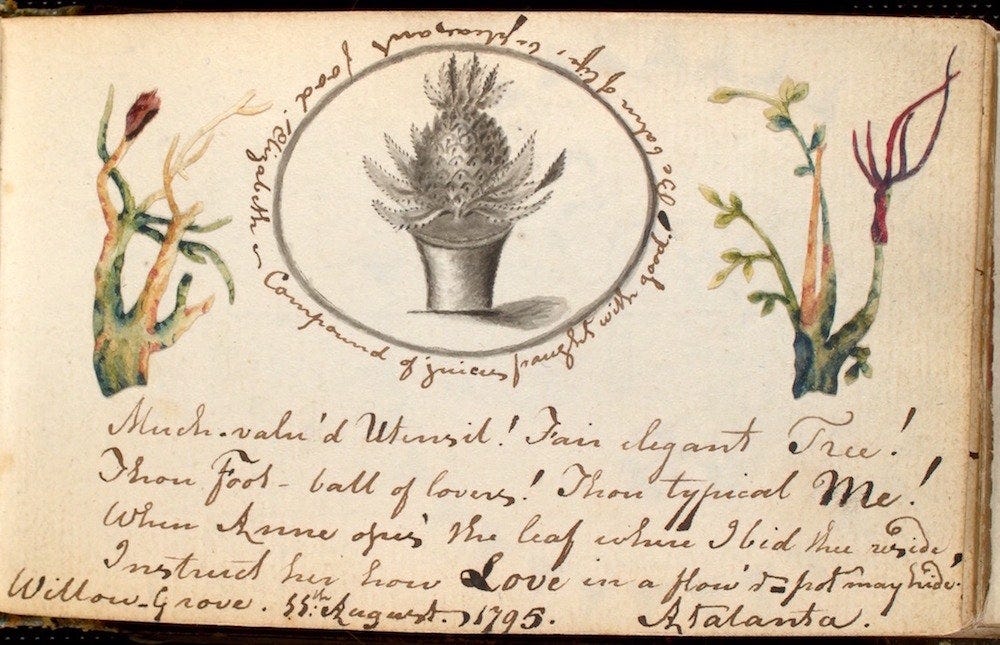 Compound of juices fraught with good!
Be balm of life, & pleasant food! Elizabeth ~
Much-valu'd Utensil! Fair elegant Tree!
Thou Foot-ball of lovers! Thou typical Me!
When Anne opes the leaf where I bid thee reside,
Instruct her how Love in a flow'r-pot may hide.
Willow-Grove. 11th August. 1795. Atalanta.